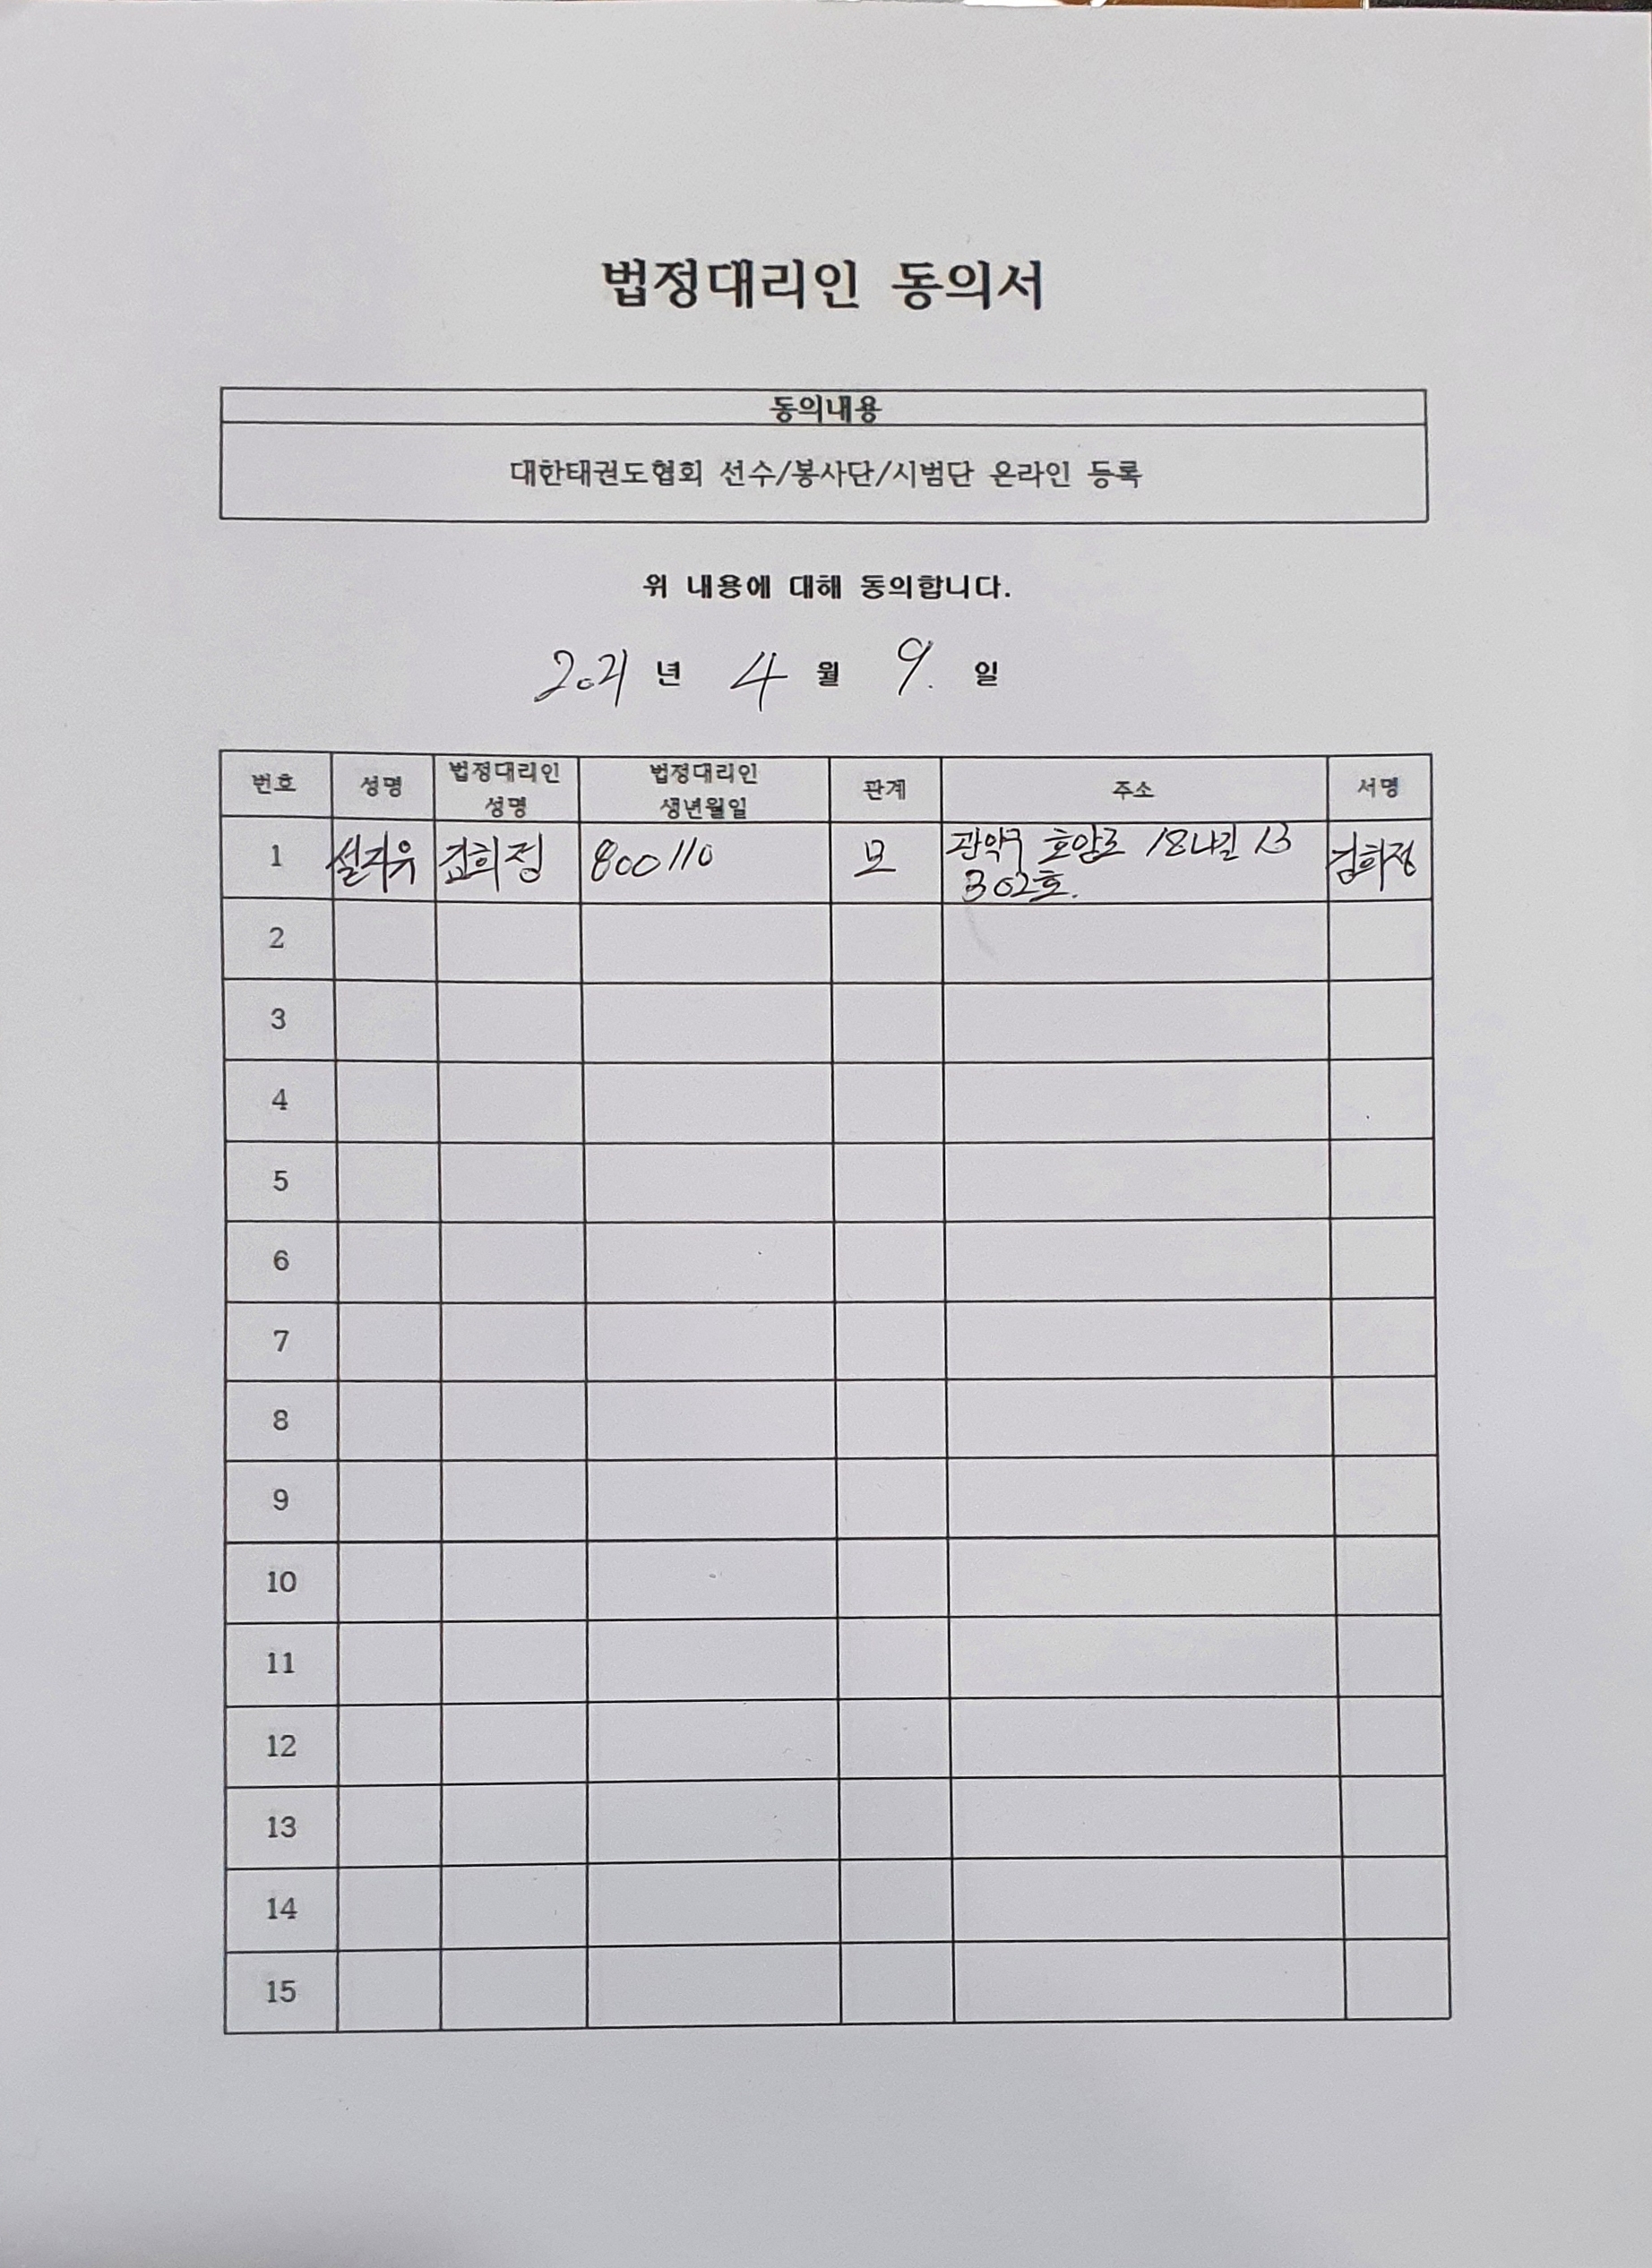 법정대리인 동의서
동의내용
대한태권도협회 선수/봉사단/시범단 온라인 등록
위 내용에 대해 동의합니다.
2021 년 4 월 9. 일
번호 성명 법정대리인 성명 법정대리인 생년월일 관계 주소 서명
1 설지유 김희정 800110 모 관악구 호암로 18나길 13 302호. 김희정
2
3
4
5
6
7
8
9
10
11
12
13
14
15